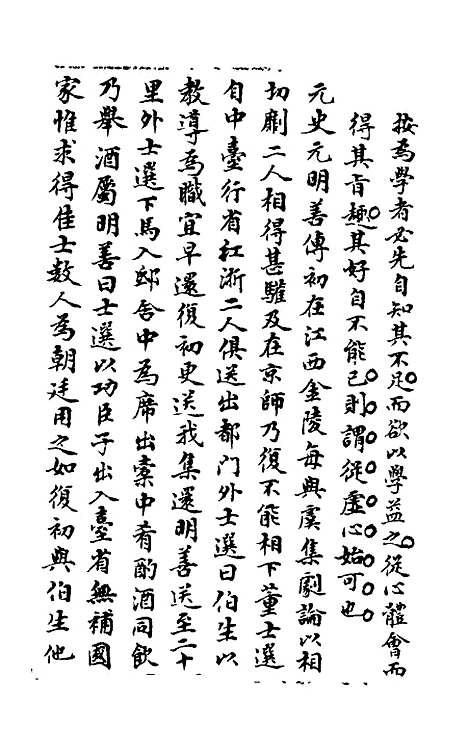 按為學者必先自知其不足而欲以學益之從心體會而
得其旨趣其好自不能已則謂從虛心始可也
元史元明善傳初在江西金陵每與虞集劇論以相
切劘二人相得甚驩及在京師乃復不能相下董士選
自中臺行省江浙二人俱送出都門外士選曰伯生以
教導為職宜早還復初更送我集還明善送至二十
里外士選下馬入邸舍中為席出橐中肴酌酒同飲
乃舉酒屬明善曰士選以功臣子出入臺省無補國
家惟求得佳士數人為朝廷用之如復初與伯生他